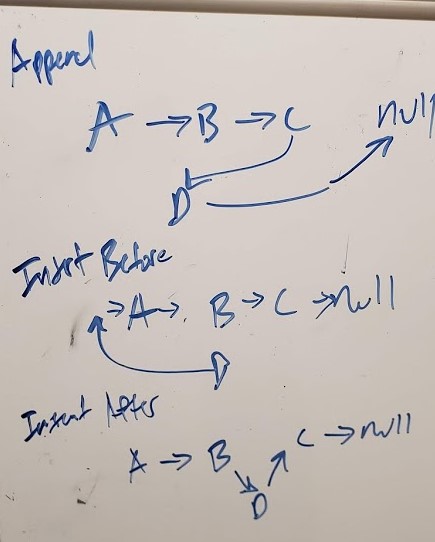 Append
A → B → C null
D
Insert Before
→ A → B → C → null
D
Insert After
A → B C → null
D